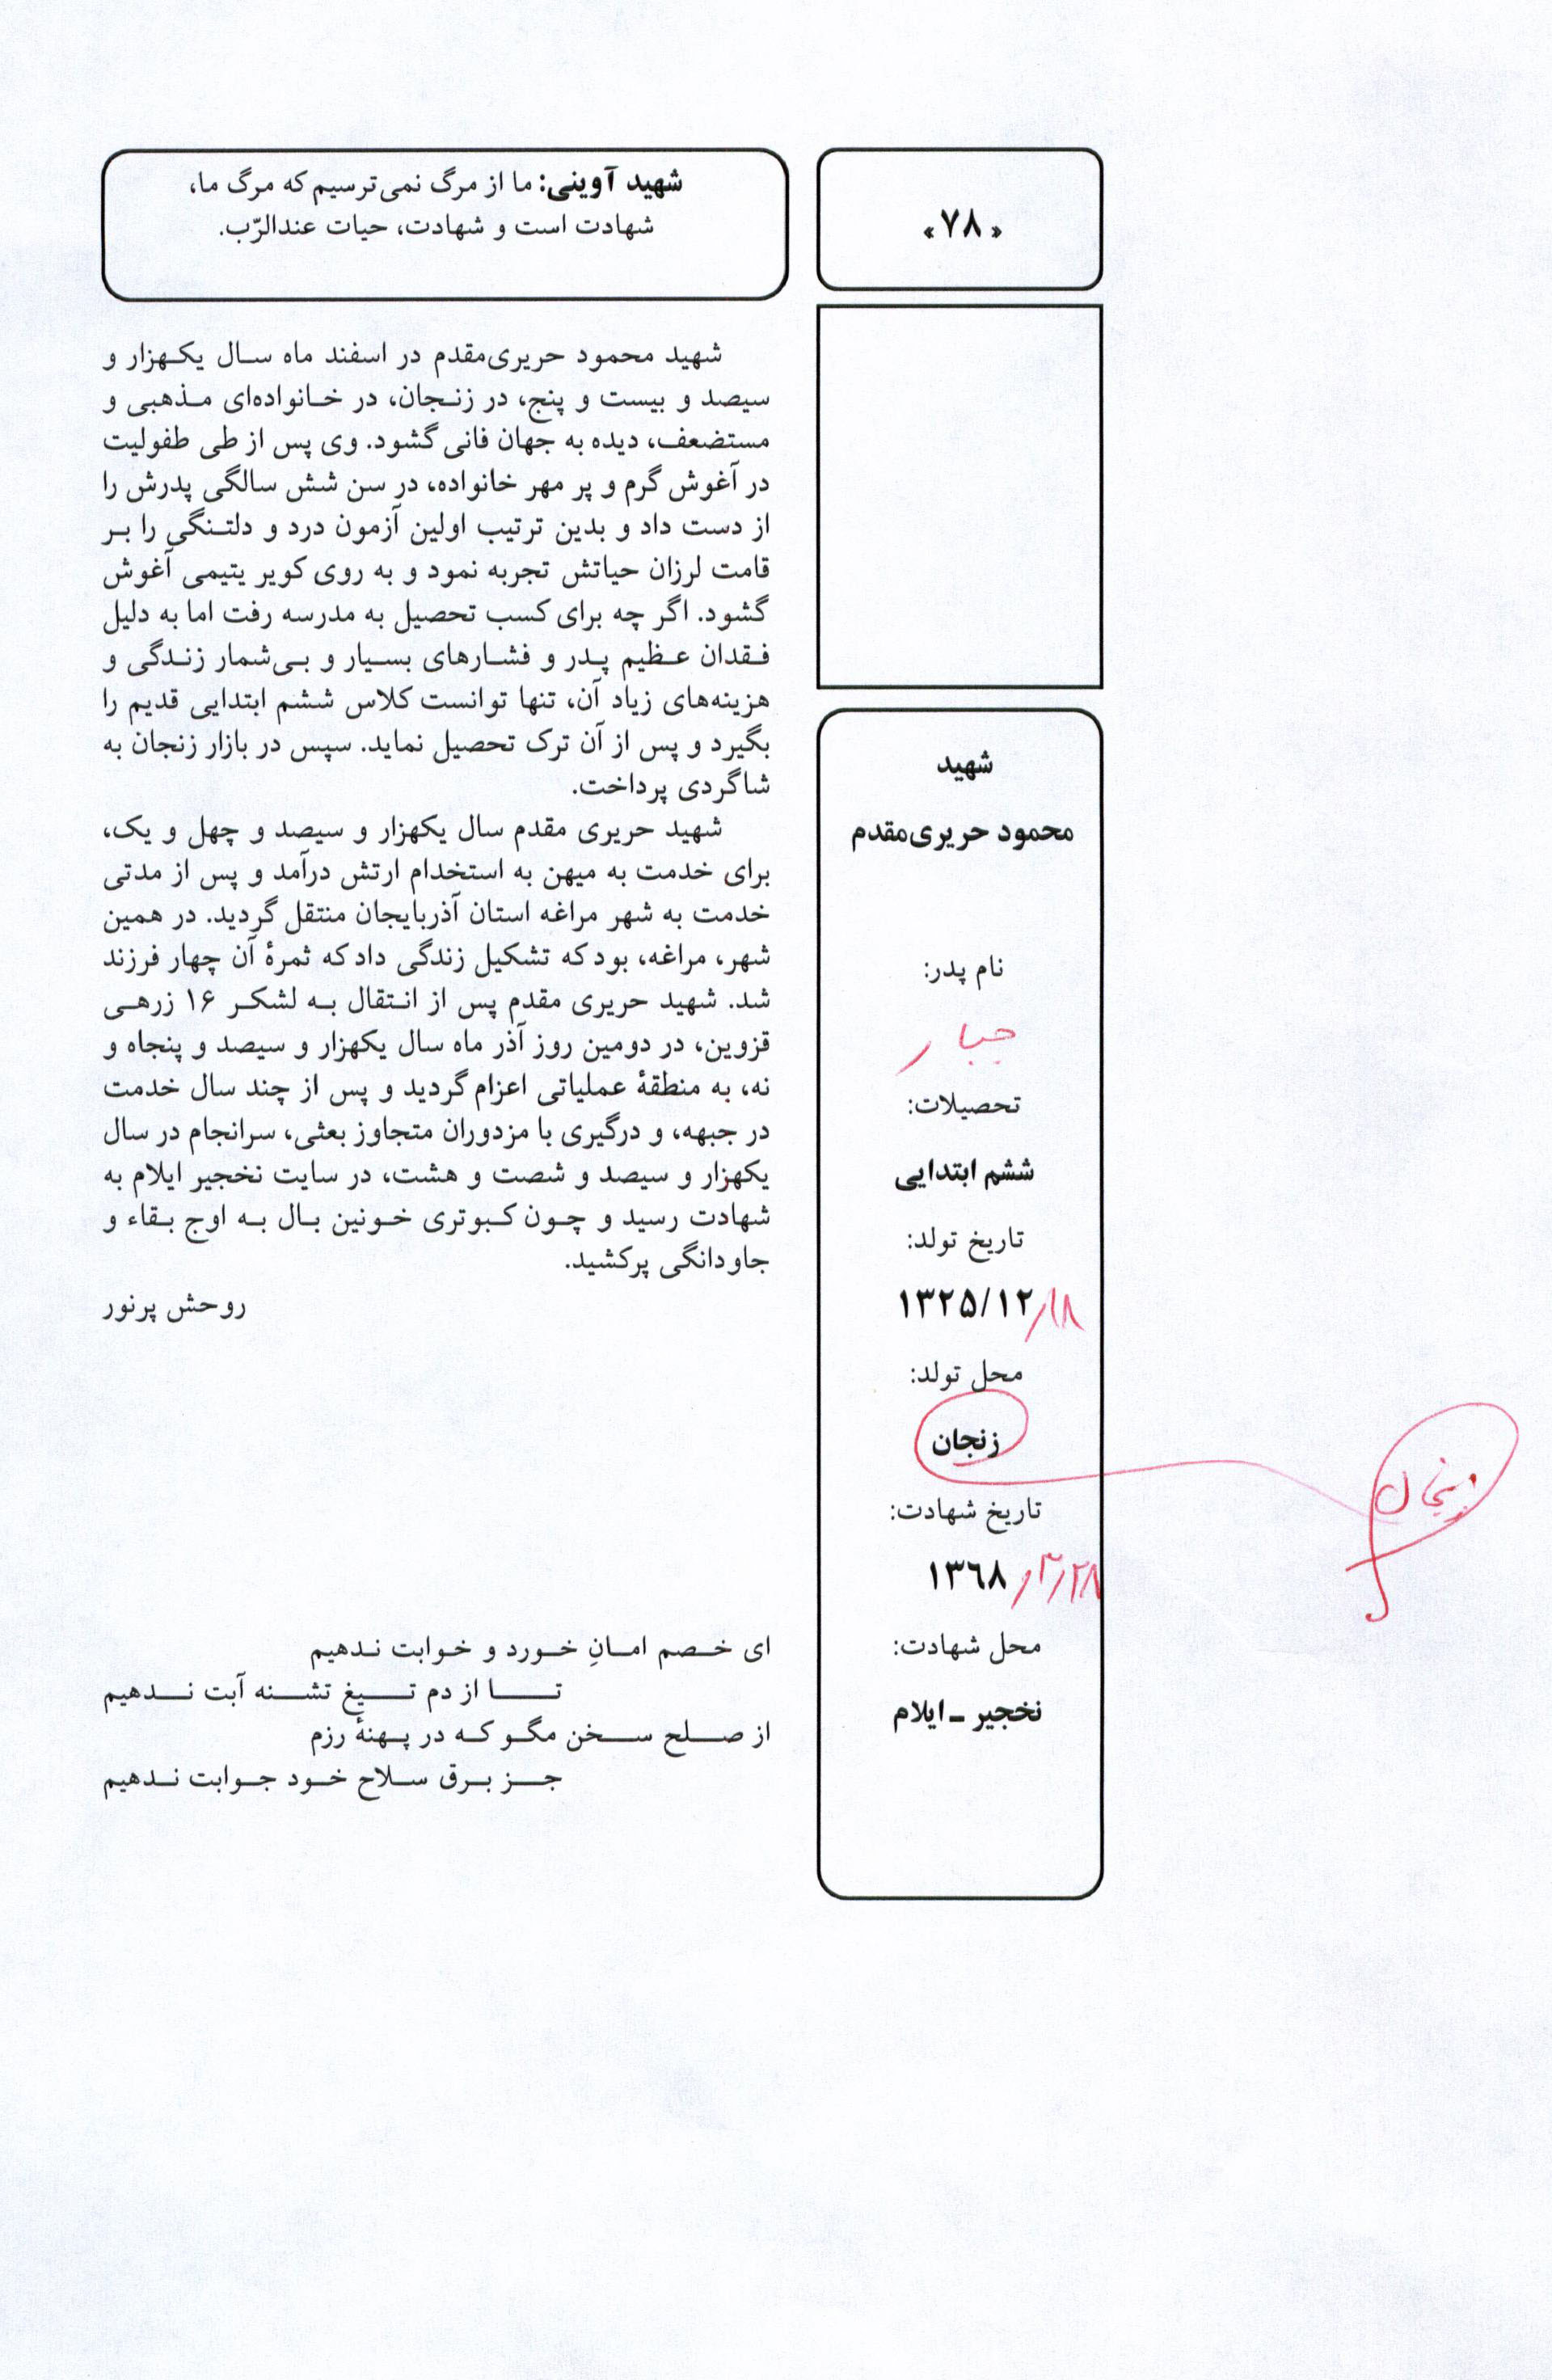 «۷۸»
شهید آوینی: ما از مرگ نمی‌ترسیم که مرگ ما،
شهادت است و شهادت، حیات عندالرّب.
شهید
محمود حریری‌مقدم
نام پدر:
جبار
تحصیلات:
ششم ابتدایی
تاریخ تولد:
۱۳۲۵/۱۲/۱۸
محل تولد:
زنجان
تاریخ شهادت:
۱۳۶۸/۳/۲۸
محل شهادت:
نخجیر ـ ایلام
شهید محمود حریری‌مقدم در اسفند ماه سال یکهزار و
سیصد و بیست و پنج، در زنجان، در خانواده‌ای مذهبی و
مستضعف، دیده به جهان فانی گشود. وی پس از طی طفولیت
در آغوش گرم و پر مهر خانواده، در سن شش سالگی پدرش را
از دست داد و بدین ترتیب اولین آزمون درد و دلتنگی را بر
قامت لرزان حیاتش تجربه نمود و به روی کویر یتیمی آغوش
گشود. اگر چه برای کسب تحصیل به مدرسه رفت اما به دلیل
فقدان عظیم پدر و فشارهای بسیار و بی‌شمار زندگی و
هزینه‌های زیاد آن، تنها توانست کلاس ششم ابتدایی قدیم را
بگیرد و پس از آن ترک تحصیل نماید. سپس در بازار زنجان به
شاگردی پرداخت.
شهید حریری مقدم سال یکهزار و سیصد و چهل و یک،
برای خدمت به میهن به استخدام ارتش درآمد و پس از مدتی
خدمت به شهر مراغه استان آذربایجان منتقل گردید. در همین
شهر، مراغه، بود که تشکیل زندگی داد که ثمرهٔ آن چهار فرزند
شد. شهید حریری مقدم پس از انتقال به لشکر ۱۶ زرهی
قزوین، در دومین روز آذر ماه سال یکهزار و سیصد و پنجاه و
نه، به منطقهٔ عملیاتی اعزام گردید و پس از چند سال خدمت
در جبهه، و درگیری با مزدوران متجاوز بعثی، سرانجام در سال
یکهزار و سیصد و شصت و هشت، در سایت نخجیر ایلام به
شهادت رسید و چون کبوتری خونین بال به اوج بقاء و
جاودانگی پرکشید.
روحش پرنور
ای خصم امانِ خورد و خوابت ندهیم
تا از دم تیغ تشنه آبت ندهیم
از صلح سخن مگو که در پهنهٔ رزم
جز برق سلاح خود جوابت ندهیم
زنجان